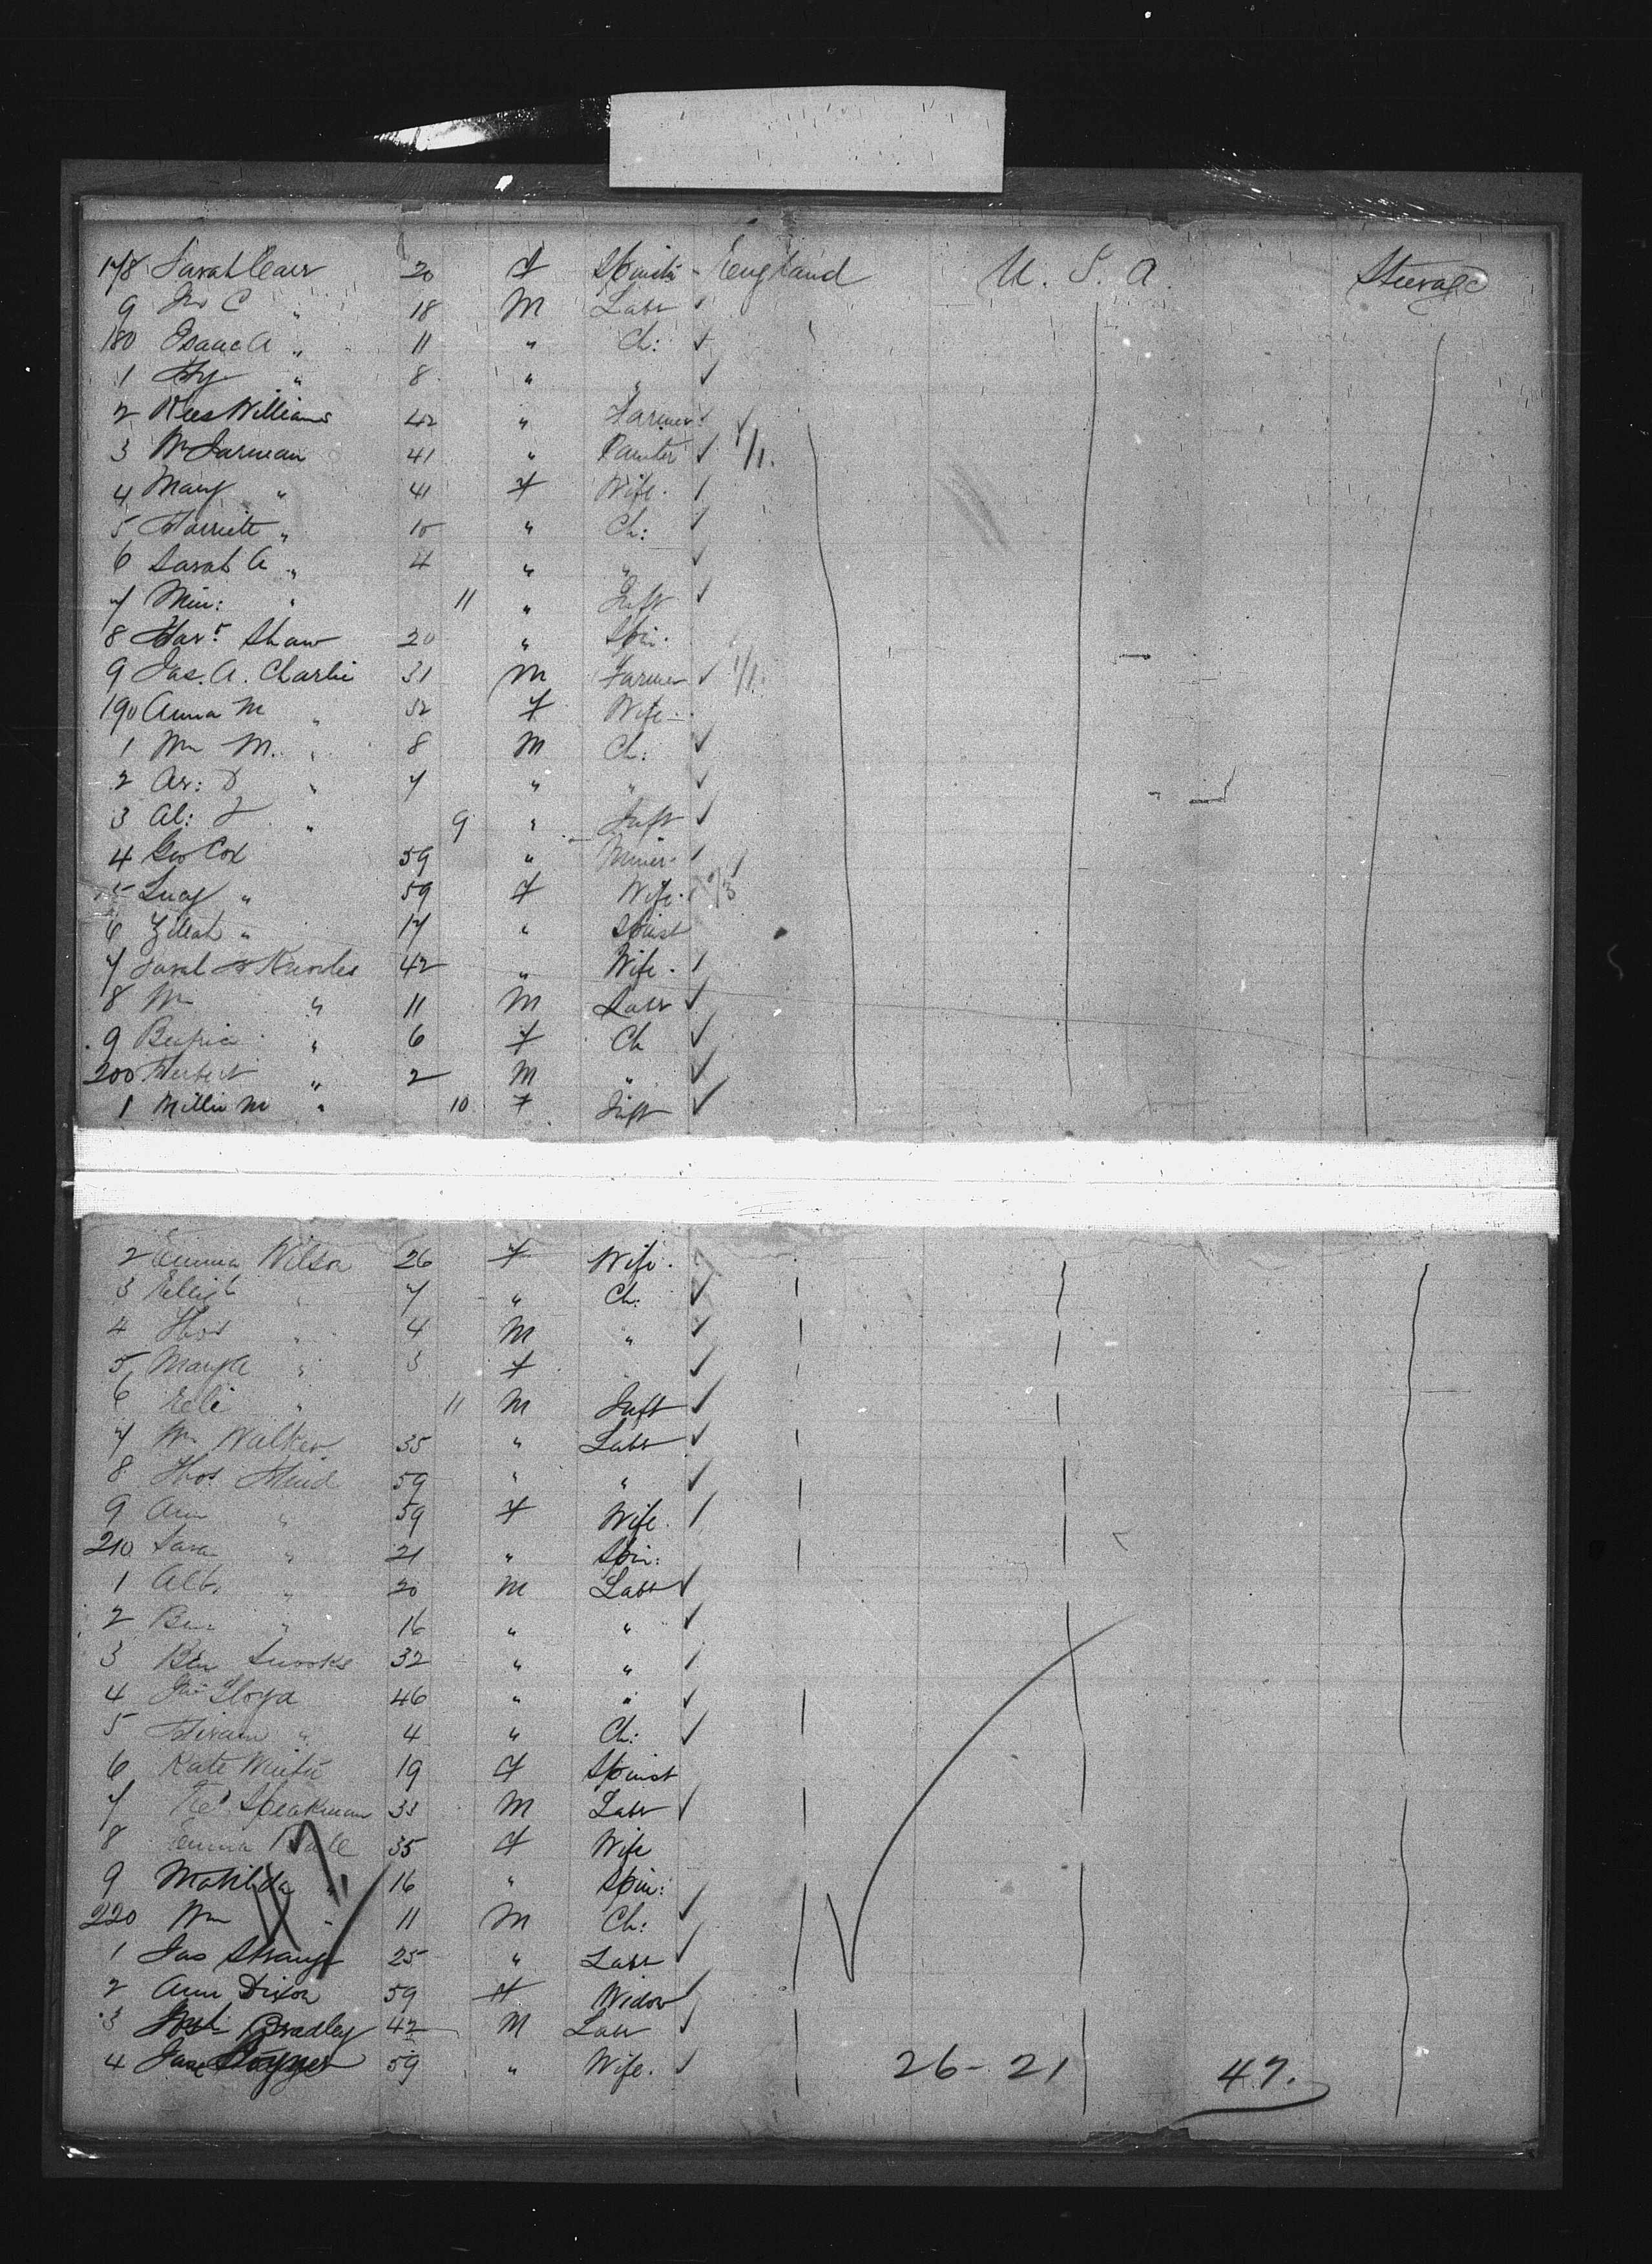 178 Sarah Carr 20 F Spinstr - England U. S. A. Steerage
9 Jno C " 18 M Labr ✓
180 Isaac A " 11 " Ch: ✓
1 Hy " 8 " " ✓
2 Rees Williams 42 " Farmer ✓ ✓
3 Wm Jarman 41 " Painter ✓ 1/1.
4 Mary " 41 F Wife. /
5 Harriett " 10 " Ch: ✓
6 Sarah A " 4 " " ✓
7 Min: " 11 " Inft ✓
8 Hart Shaw 20 " Spin.
9 Jas. A. Charlie 31 M Farmer ✓ 1/1.
190 Anna M " 32 F Wife
1 Wm M. " 8 M Ch: ✓
2 Ar: D " 7 " " ✓
3 Al: J " 9 " Inft ✓
4 Geo Cox 59 " Miner. /
5 Lucy " 59 F Wife. /
6 Zillah " 17 " Spinst
7 Sarah Knowles 42 " Wife. /
8 Wm " 11 M Labr ✓
9 " 6 F Ch ✓
200 Herbert " 2 M " ✓
1 Millie M " 10 F Inft ✓
2 Emma Wilson 26 F Wife.
3 " 7 " Ch: ✓
4 Thos " 4 M " ✓
5 Mary A " 3 F ✓
6 Eli " 11 M Inft ✓
7 Wm Walker 35 " Labr ✓
8 Thos 59 " " ✓
9 Ann " 59 F Wife. /
210 Sara " 21 " Spin:
1 Alb. " 20 M Labr ✓
2 Ben " 16 " " ✓
3 Ben Snooks 32 " " /
4 Lloyd 46 " " ✓
5 Hiram " 4 " Ch: ✓
6 Kate 19 F Spinst
7 Speakman 33 M Labr ✓
8 Emma 35 F Wife
9 Matilda " 16 " Spin:
220 Wm " 11 M Ch: ✓
1 Jas Strange 25 " Labr ✓
2 Ann Dixon 59 F Widow /
3 Bradley 42 M Labr ✓
4 Jane 59 " Wife. ✓ 26 - 21 47.